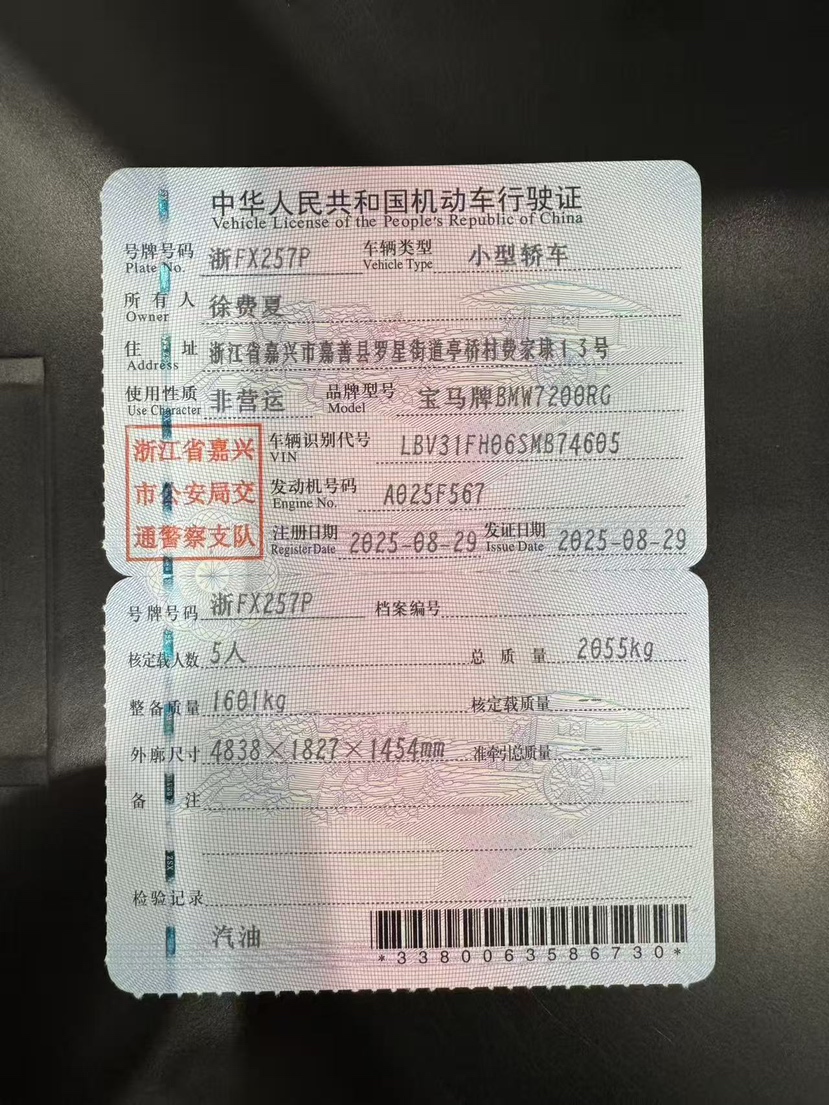 中华人民共和国机动车行驶证
Vehicle License of the People's Republic of China
号牌号码 Plate No. 浙FX257P 车辆类型 Vehicle Type 小型轿车
所有人 Owner 徐费夏
住址 Address 浙江省嘉兴市嘉善县罗星街道亭桥村费家埭13号
使用性质 Use Character 非营运 品牌型号 Model 宝马牌BMW7200RG
浙江省嘉兴
市公安局交
通警察支队
车辆识别代号 VIN LBV31FH06SMB74605
发动机号码 Engine No. A025F567
注册日期 Register Date 2025-08-29 发证日期 Issue Date 2025-08-29
号牌号码 浙FX257P 档案编号
核定载人数 5人 总质量 2055kg
整备质量 1601kg 核定载质量 --
外廓尺寸 4838×1827×1454mm 准牵引总质量 --
备注
检验记录
汽油
*3380063586730*